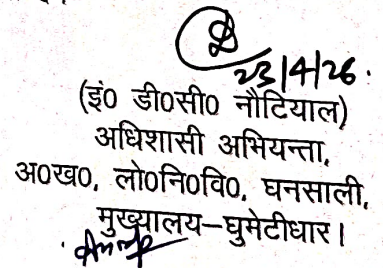 23/4/26.
(इं0 डी0सी0 नौटियाल)
अधिशासी अभियन्ता,
अ0ख0, लो0नि0वि0, घनसाली,
मुख्यालय–घुमेटीधार।